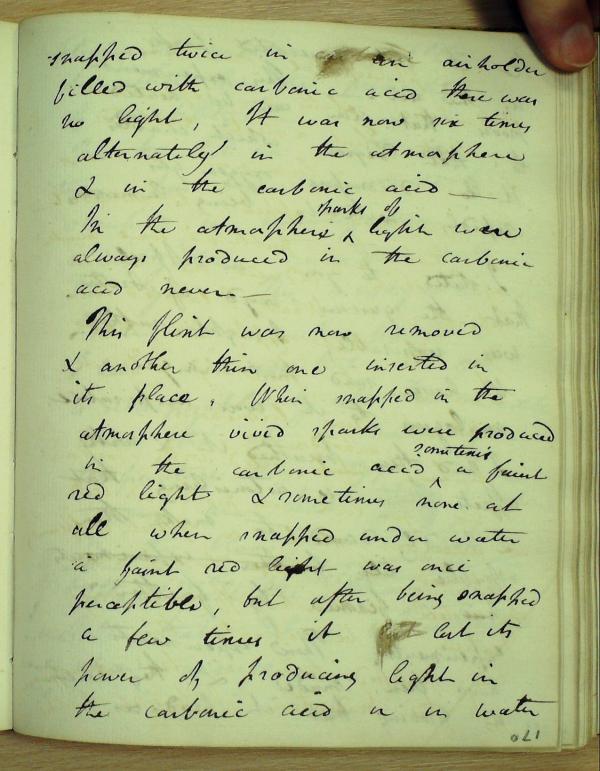 snapped twice in an airholder
filled with carbonic acid there was
no light, It was now six times
alternately in the atmosphere
& in the carbonic acid —
sparks of
In the atmosphere ^ light were
always produced in the carbonic
acid never. —
This flint was now removed
& another thin one inserted in
its place. When snapped in the
atmosphere vivid sparks were produced
sometimes
in the carbonic acid ^ a faint
red light & sometimes none at
all when snapped under water
a faint red light was once
perceptible, but after being snapped
a few times it lost its
power of producing light in
the carbonic acid or in water
170